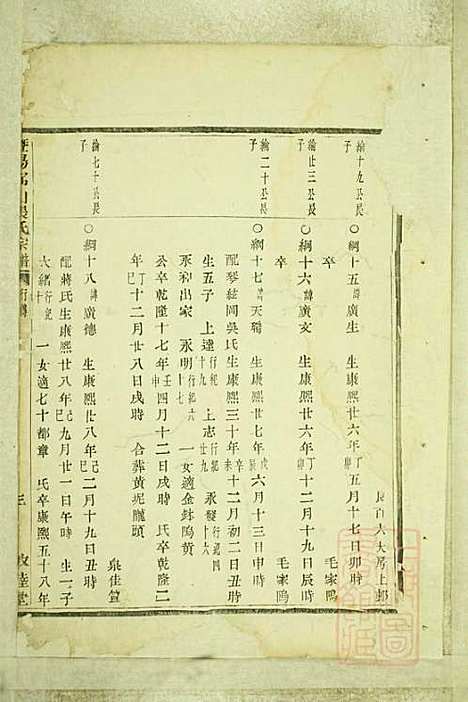 長百六大房上部
綸十九公長子
○綱十五諱廣生 生康熙廿六年丁卯五月十七日卯時 毛家隝
卒
綸廿三公長子
○綱十六諱廣文 生康熙廿六年丁卯十二月十九日辰時 毛家隝
卒
綸二十公長子
○綱十七諱天騁 生康熙廿七年戊辰六月十三日申時
配琴絃岡吳氏生康熙三十年辛未十二月初二日丑時
生五子 上達行紀十九 上志行紀廿九 永發行紀四
永科出家 永明行紀六十七 一女適金鉢隝黃
公卒乾隆十七年壬申四月十二日戌時 氏卒乾隆二
年丁巳十二月廿八日戌時 合葬黃坭隴頭
綸七十公長子
○綱十八諱廣德 生康熙廿八年己巳二月十九日丑時 泉佳
配蔣氏生康熙廿八年己巳九月廿一日午時 生一子
大緒行紀十 一女適七十都章 氏卒康熙五十八年
氏宗譜 行
三 收睦堂